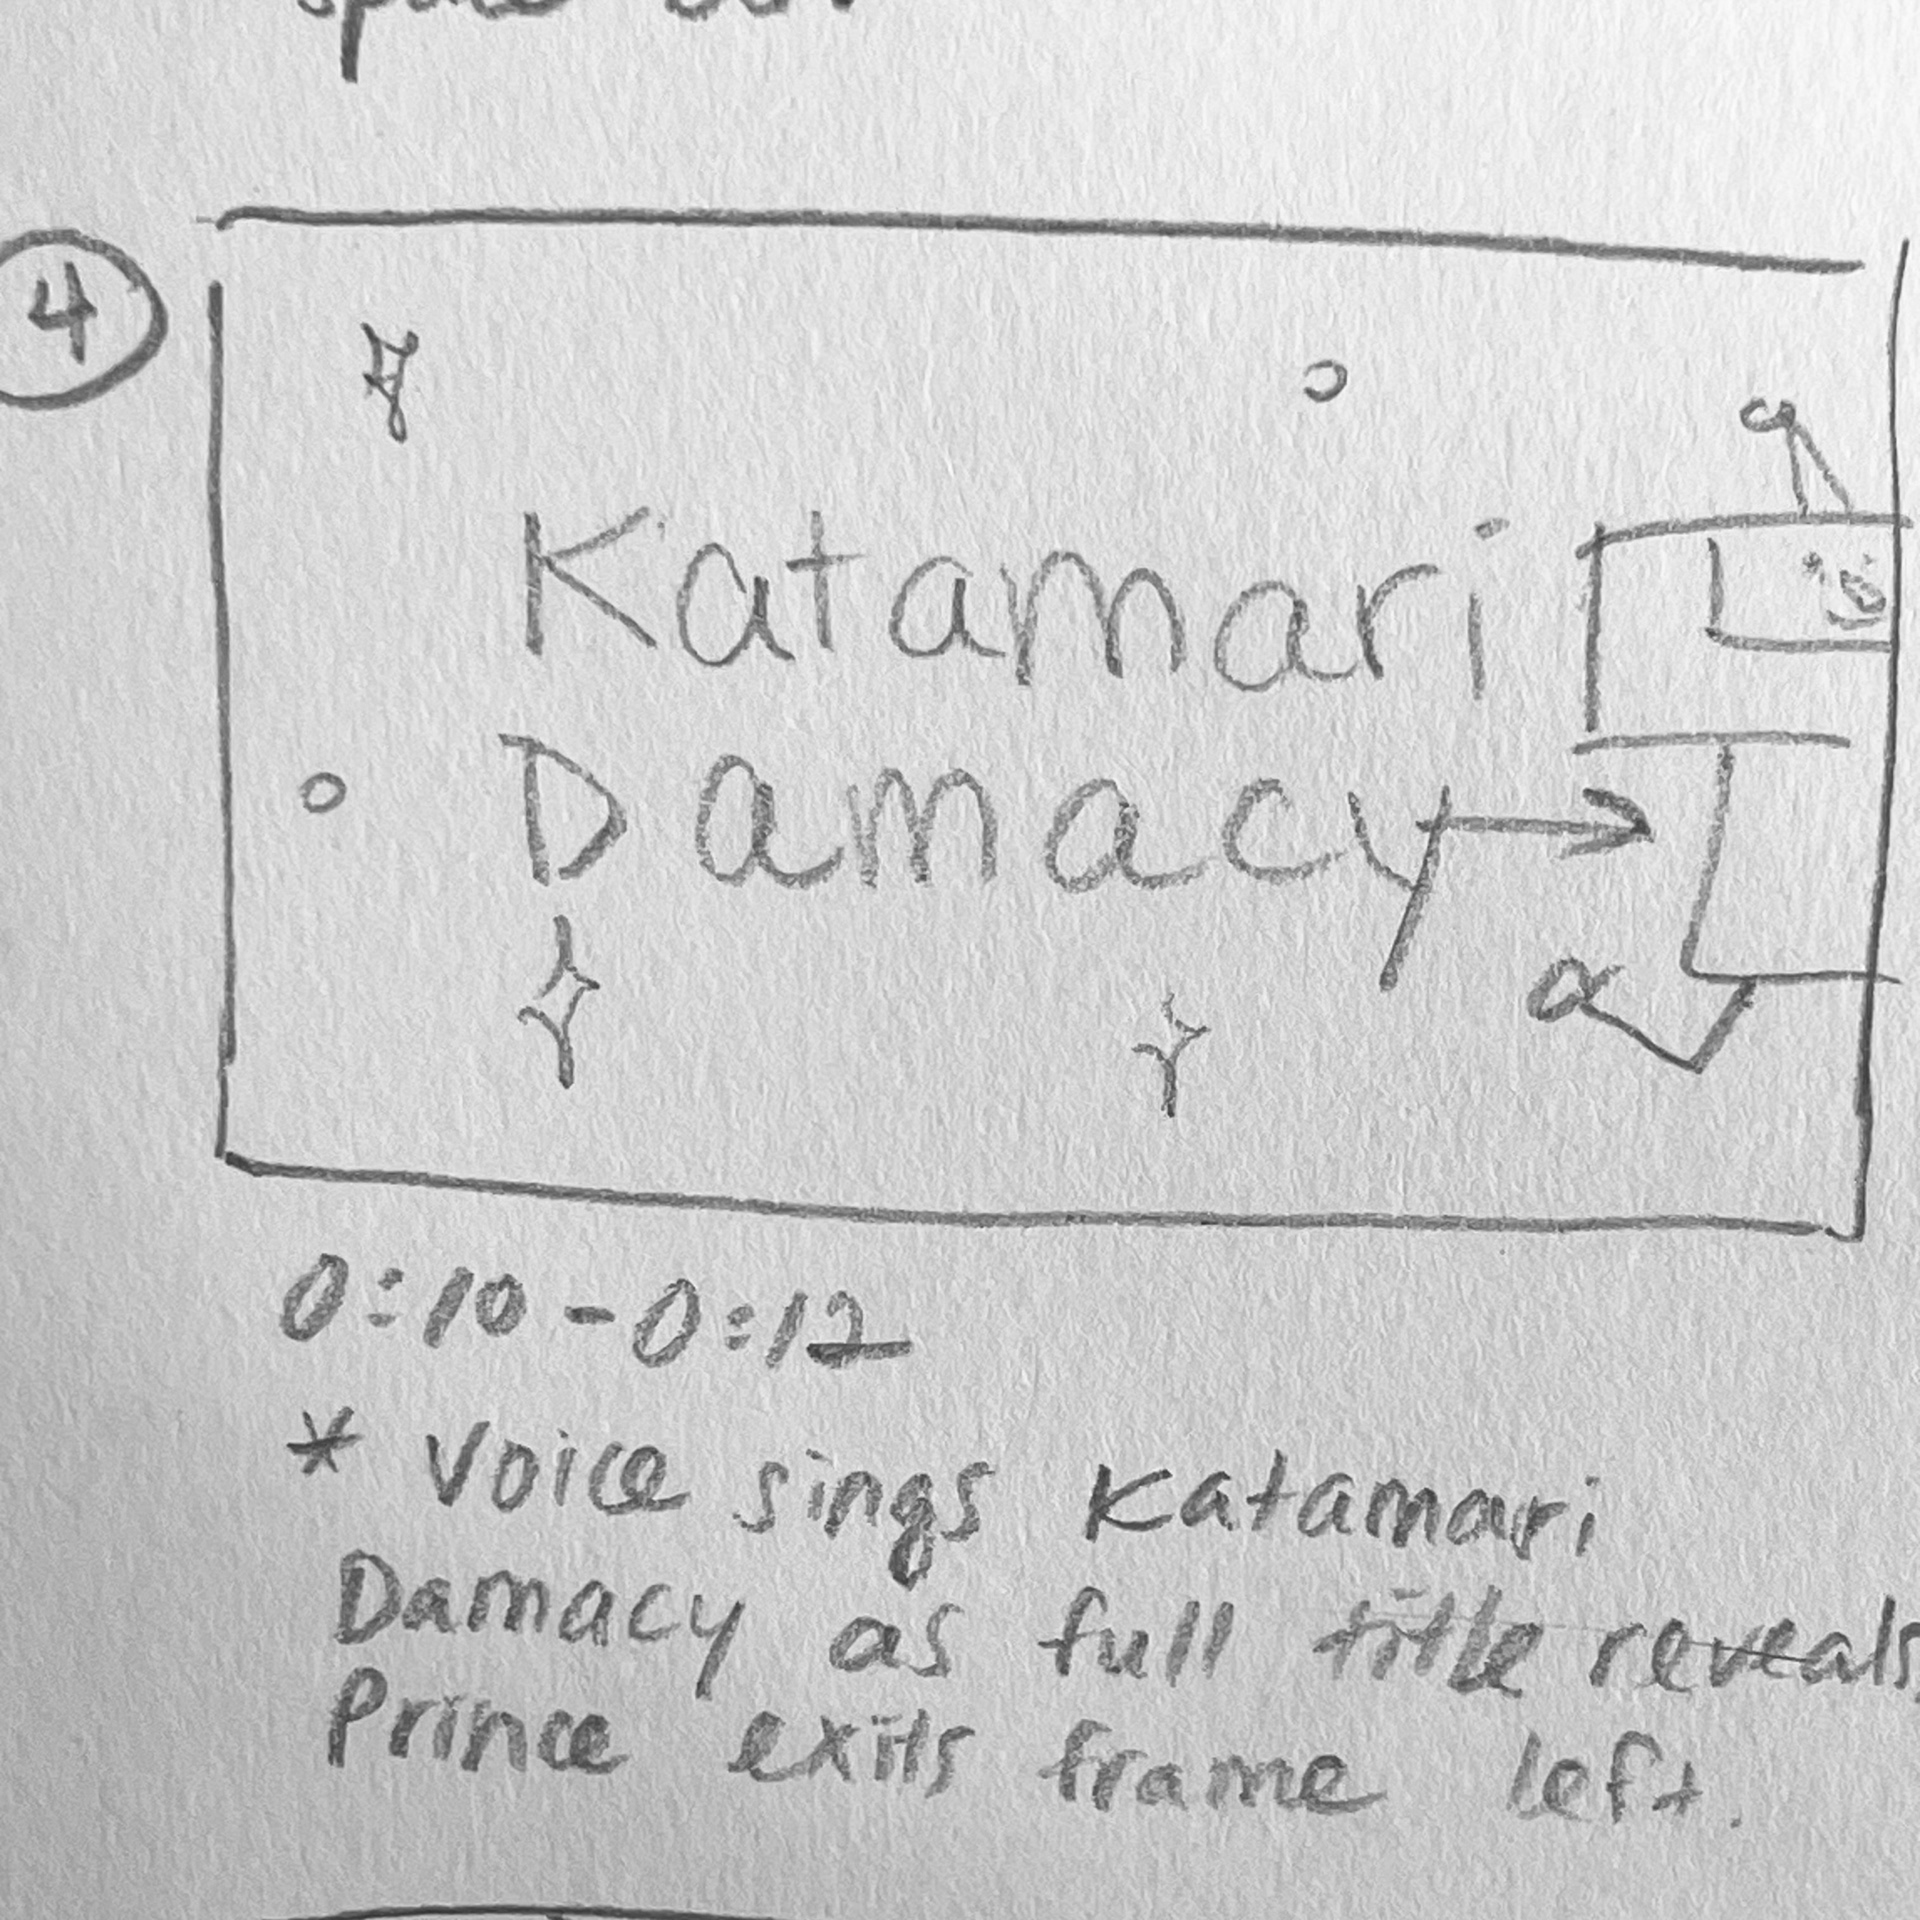 4
Katamari
Damacy
0:10 - 0:12
* Voice sings Katamari
Damacy as full title reveals.
Prince exits frame left.